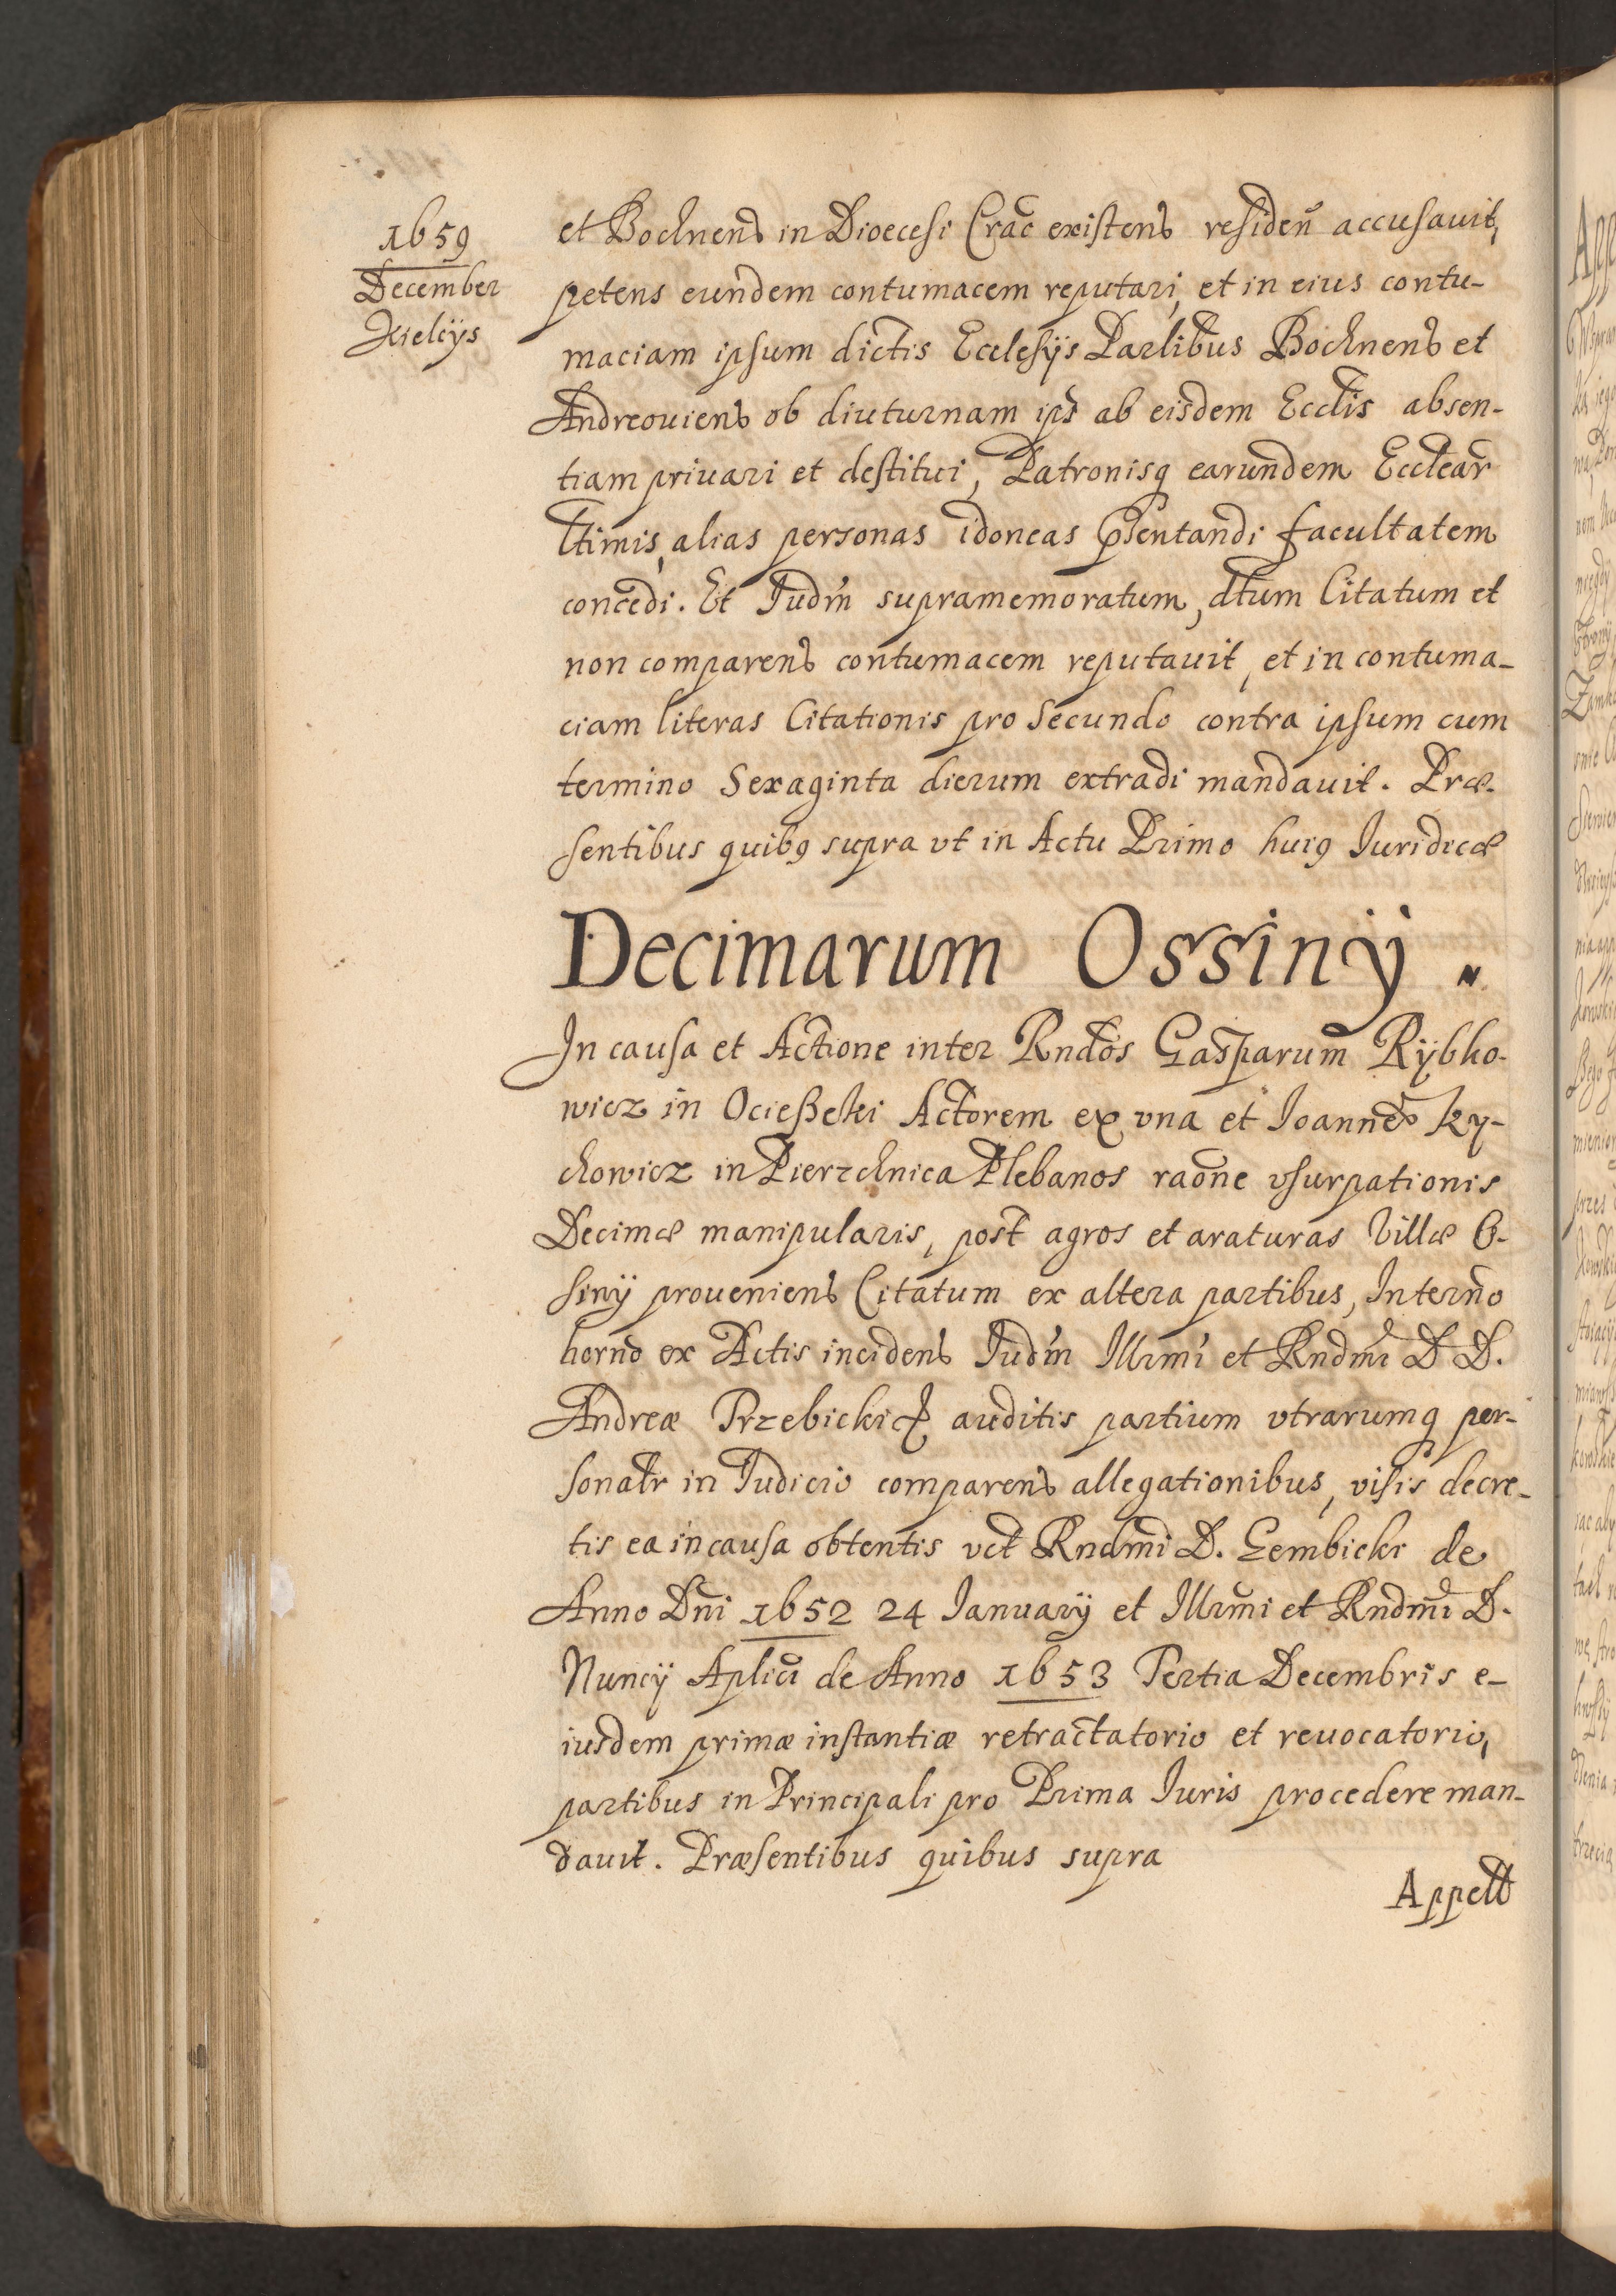 1659
December
Kielcÿs
et Bochnens in Dioecesi Crac̃ existens residen̄ accusauit,
petens eundem contumacem reputari, et in eius contu-
maciam ipsum dictis Ecclesÿs Parlibus Bochnens et
Andreouiens ob diuturnam ips ab eisdem Ecclis absen-
tiam priuari et destitui, Patronisq earundem Ecclear
ltimis, alias personas idoneas pſentandi facultatem
concedi. Et Iudm̃ supramemoratum, dtum Citatum et
non comparens contumacem reputauit, et in contuma-
ciam literas Citationis pro Secundo contra ipsum cum
termino Sexaginta dierum extradi mandauit. Præ-
sentibus quibꝯ supra vt in Actu Primo huiꝯ Iuridicæ
Decimarum Ossinÿ
In causa et Actione inter Rndos Gasparum Rÿbko-
wicz in Ocießeki Actorem ex vna et Ioannes Ry-
chowicz in Pierzchnica Plebanos raõne vsurpationis
Decimæ manipularis, post agros et araturas Villæ O-
sinÿ proueniens Citatum ex altera partibus, In termo
horno ex Actis incidens Iudm̃ Illrmi et Rndmi D D.
Andreæ Trzebicki auditis partium vtrarumq per-
sonalr in Iudicio comparens allegationibus, visis decre-
tis ea in causa obtentis vct Rndmi D. Gembicki de
Anno Dñi 1652 24 Ianuarÿ et Illrmi et Rndmi D.
Nuncÿ Aplici de Anno 1653 Tertia Decembris e-
iusdem primæ instantiæ retractatorio et reuocatorio,
partibus in Principali pro Prima Iuris procedere man-
dauit. Præsentibus quibus supra
Appell